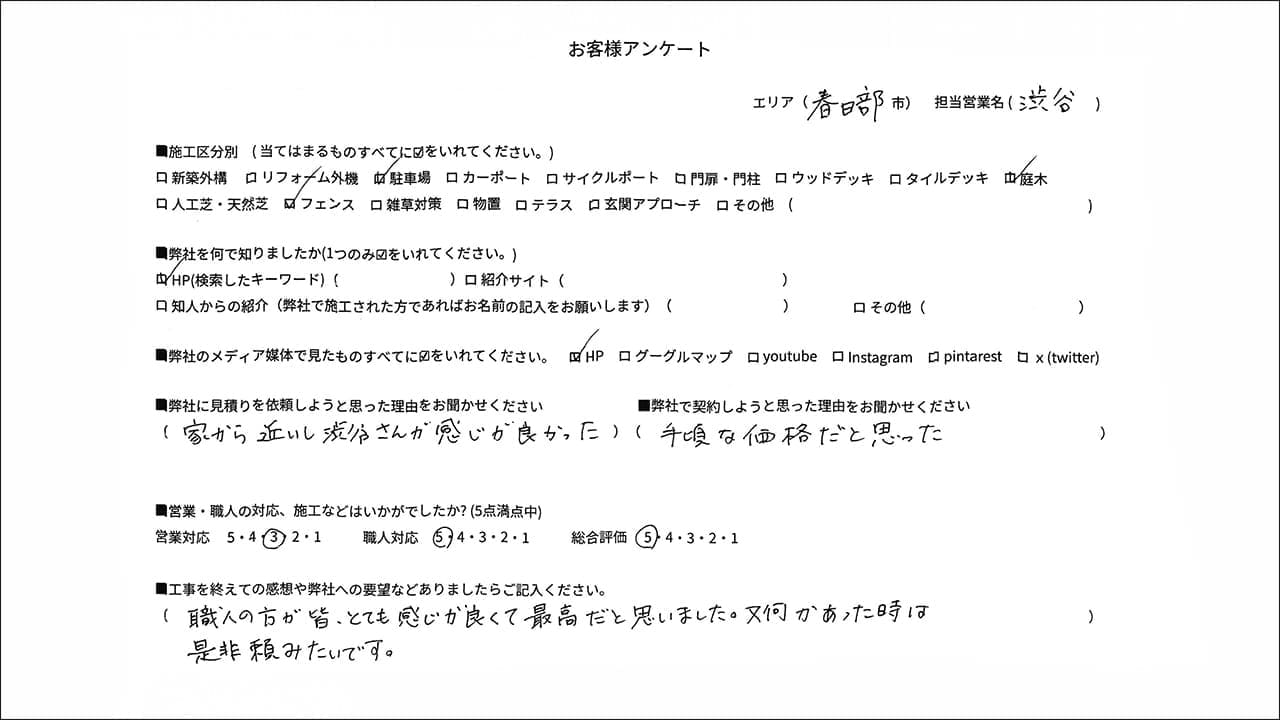 お客様アンケート
エリア（春日部市） 担当営業名（渋谷）
■施工区分別 （当てはまるものすべてに☑をいれてください。）
□新築外構 □リフォーム外機 ☑駐車場 □カーポート □サイクルポート □門扉・門柱 □ウッドデッキ □タイルデッキ ☑庭木
□人工芝・天然芝 ☑フェンス □雑草対策 □物置 □テラス □玄関アプローチ □その他（ ）
■弊社を何で知りましたか(1つのみ☑をいれてください。)
☑HP(検索したキーワード)（ ）□紹介サイト（ ）
□知人からの紹介（弊社で施工された方であればお名前の記入をお願いします）（ ） □その他（ ）
■弊社のメディア媒体で見たものすべてに☑をいれてください。 ☑HP □グーグルマップ □youtube □Instagram □pintarest □x(twitter)
■弊社に見積りを依頼しようと思った理由をお聞かせください ■弊社で契約しようと思った理由をお聞かせください
（家から近いし渋谷さんが感じが良かった）（手頃な価格だと思った）
■営業・職人の対応、施工などはいかがでしたか?(5点満点中)
営業対応 5・4・③・2・1 職人対応 ⑤・4・3・2・1 総合評価 ⑤・4・3・2・1
■工事を終えての感想や弊社への要望などありましたらご記入ください。
（職人の方が皆、とても感じが良くて最高だと思いました。又何かあった時は
是非頼みたいです。）